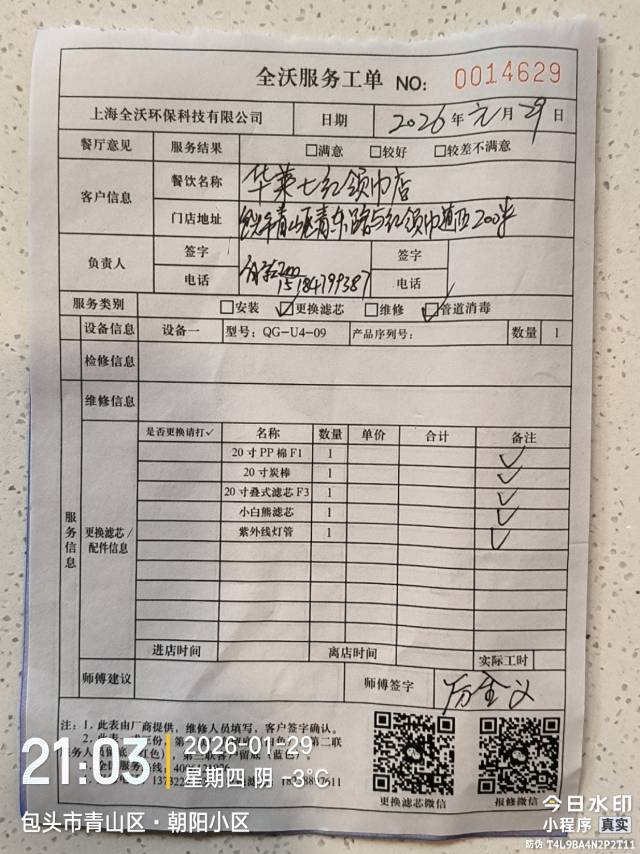 全沃服务工单 NO: 0014629
上海全沃环保科技有限公司 日期 2026年元月29日
餐厅意见 服务结果 □满意 □较好 □较差不满意
客户信息 餐饮名称 华莱士红领巾店
门店地址 青山区青东路与红领巾道西200米
负责人 签字 签字
电话 15184799387 电话
服务类别 □安装 ☑更换滤芯 □维修 ☑管道消毒
设备信息 设备一 型号: QG-U4-09 产品序列号: 数量 1
检修信息
维修信息
服务信息
更换滤芯/配件信息
是否更换请打✓ 名称 数量 单价 合计 备注
20寸PP棉F1 1 ✓
20寸炭棒 1 ✓
20寸叠式滤芯F3 1 ✓
小白熊滤芯 1 ✓
紫外线灯管 1 ✓
进店时间 离店时间 实际工时
师傅建议 师傅签字
注: 1、此表由厂商提供，维修人员填写，客户签字确认。
更换滤芯微信 报修微信
21:03 2026-01-29
星期四 阴 -3℃
包头市青山区·朝阳小区
今日水印
小程序 真实
防伪 T4L9BA4N2P2T11